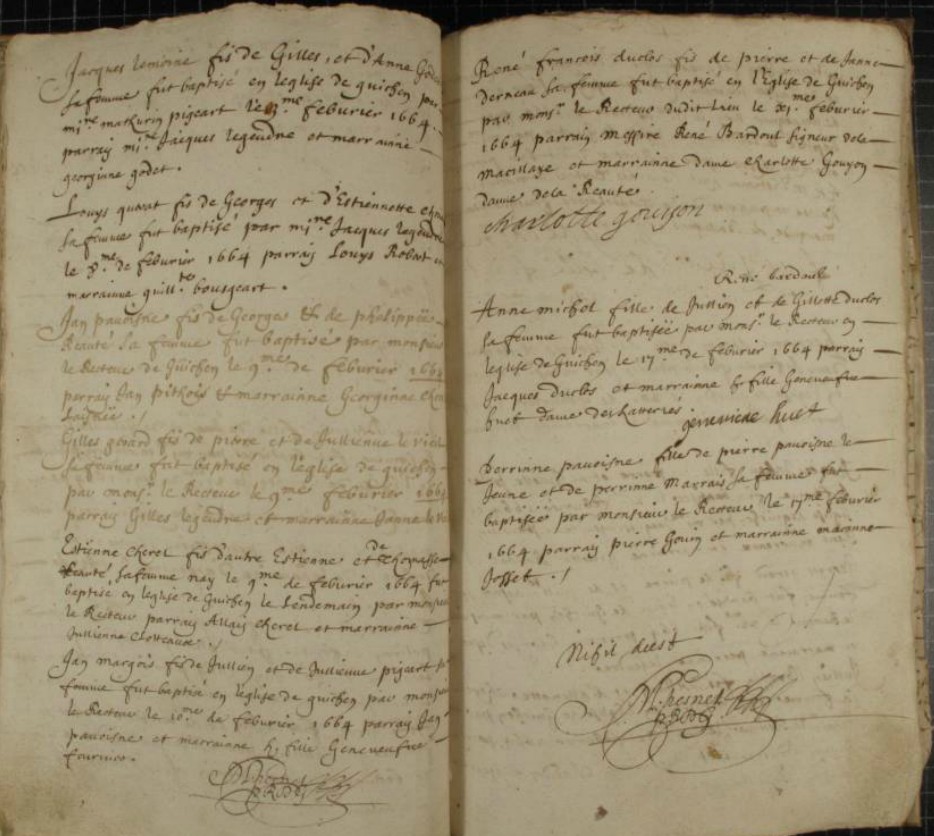 Jacques lemoine fis de Gilles, et d'Anne
sa femme fut baptisé en leglise de guichen par
mire mathurin pigeart le me feburier 1664.
parray mire Jacques legendre et marrainne
georginne godet.
Louys fis de Georges et d'Estiennette
sa femme fut baptisé par mire Jacques legendre
le 8me de feburier 1664 parray Louys Robert
marrainne guillte bousgeart.
Jan pavoisne fis de Georges & de phelippe
Reauté sa femme fut baptisé par monsieur
le Recteur de Guichen le 9me de feburier 1664
parray Jan pithois & marrainne Georginne
Gilles gerard fis de pierre et de Jullienne le
sa femme fut baptisé en leglise de guichen
par monsr le Recteur le 9me feburier 1664
parray Gilles legendre et marrainne Janne le
Estienne cherel fis d'autre Estienne et de
Reauté sa femme nay le 9me de feburier 1664 fut
baptisé en leglise de Guichen le Lendemain par monsieur
le Recteur parray Allain cherel et marrainne
Jullienne ./
Jan margois fis de Jullien et de Jullienne pigeart sa
femme fut baptisé en leglise de guichen par monsieur
le Recteur le 10me de feburier 1664 parray Jan
pavoisne et marrainne h. fille Geneveufve
fournier.
René francois duclos fis de pierre et de Janne
derneau sa femme fut baptisé en l'Eglise de Guichen
par monsr le Recteur dudit Lieu le me feburier
1664 parrain messire René Bardoul signeur dela
macillaye et marrainne dame charlotte Gouyon
dame dela Reauté
charlotte gouison
René bardoul
Anne michel fille de Jullien et de Gillette duclos
sa femme fut baptisée par monsr le Recteur en
leglise de Guichen le 17me de feburier 1664 parray
Jacques duclos et marrainne h. fille Geneveufve
huet dame des hatteries
genevieve huet
perrinne pavoisne fille de pierre pavoisne le
Jeune et de perrinne Marrais sa femme fut
baptisée par monsieur le Recteur le 17me feburier
1664 parray pierre Gouin et marrainne
Josset ./
Nihil deest